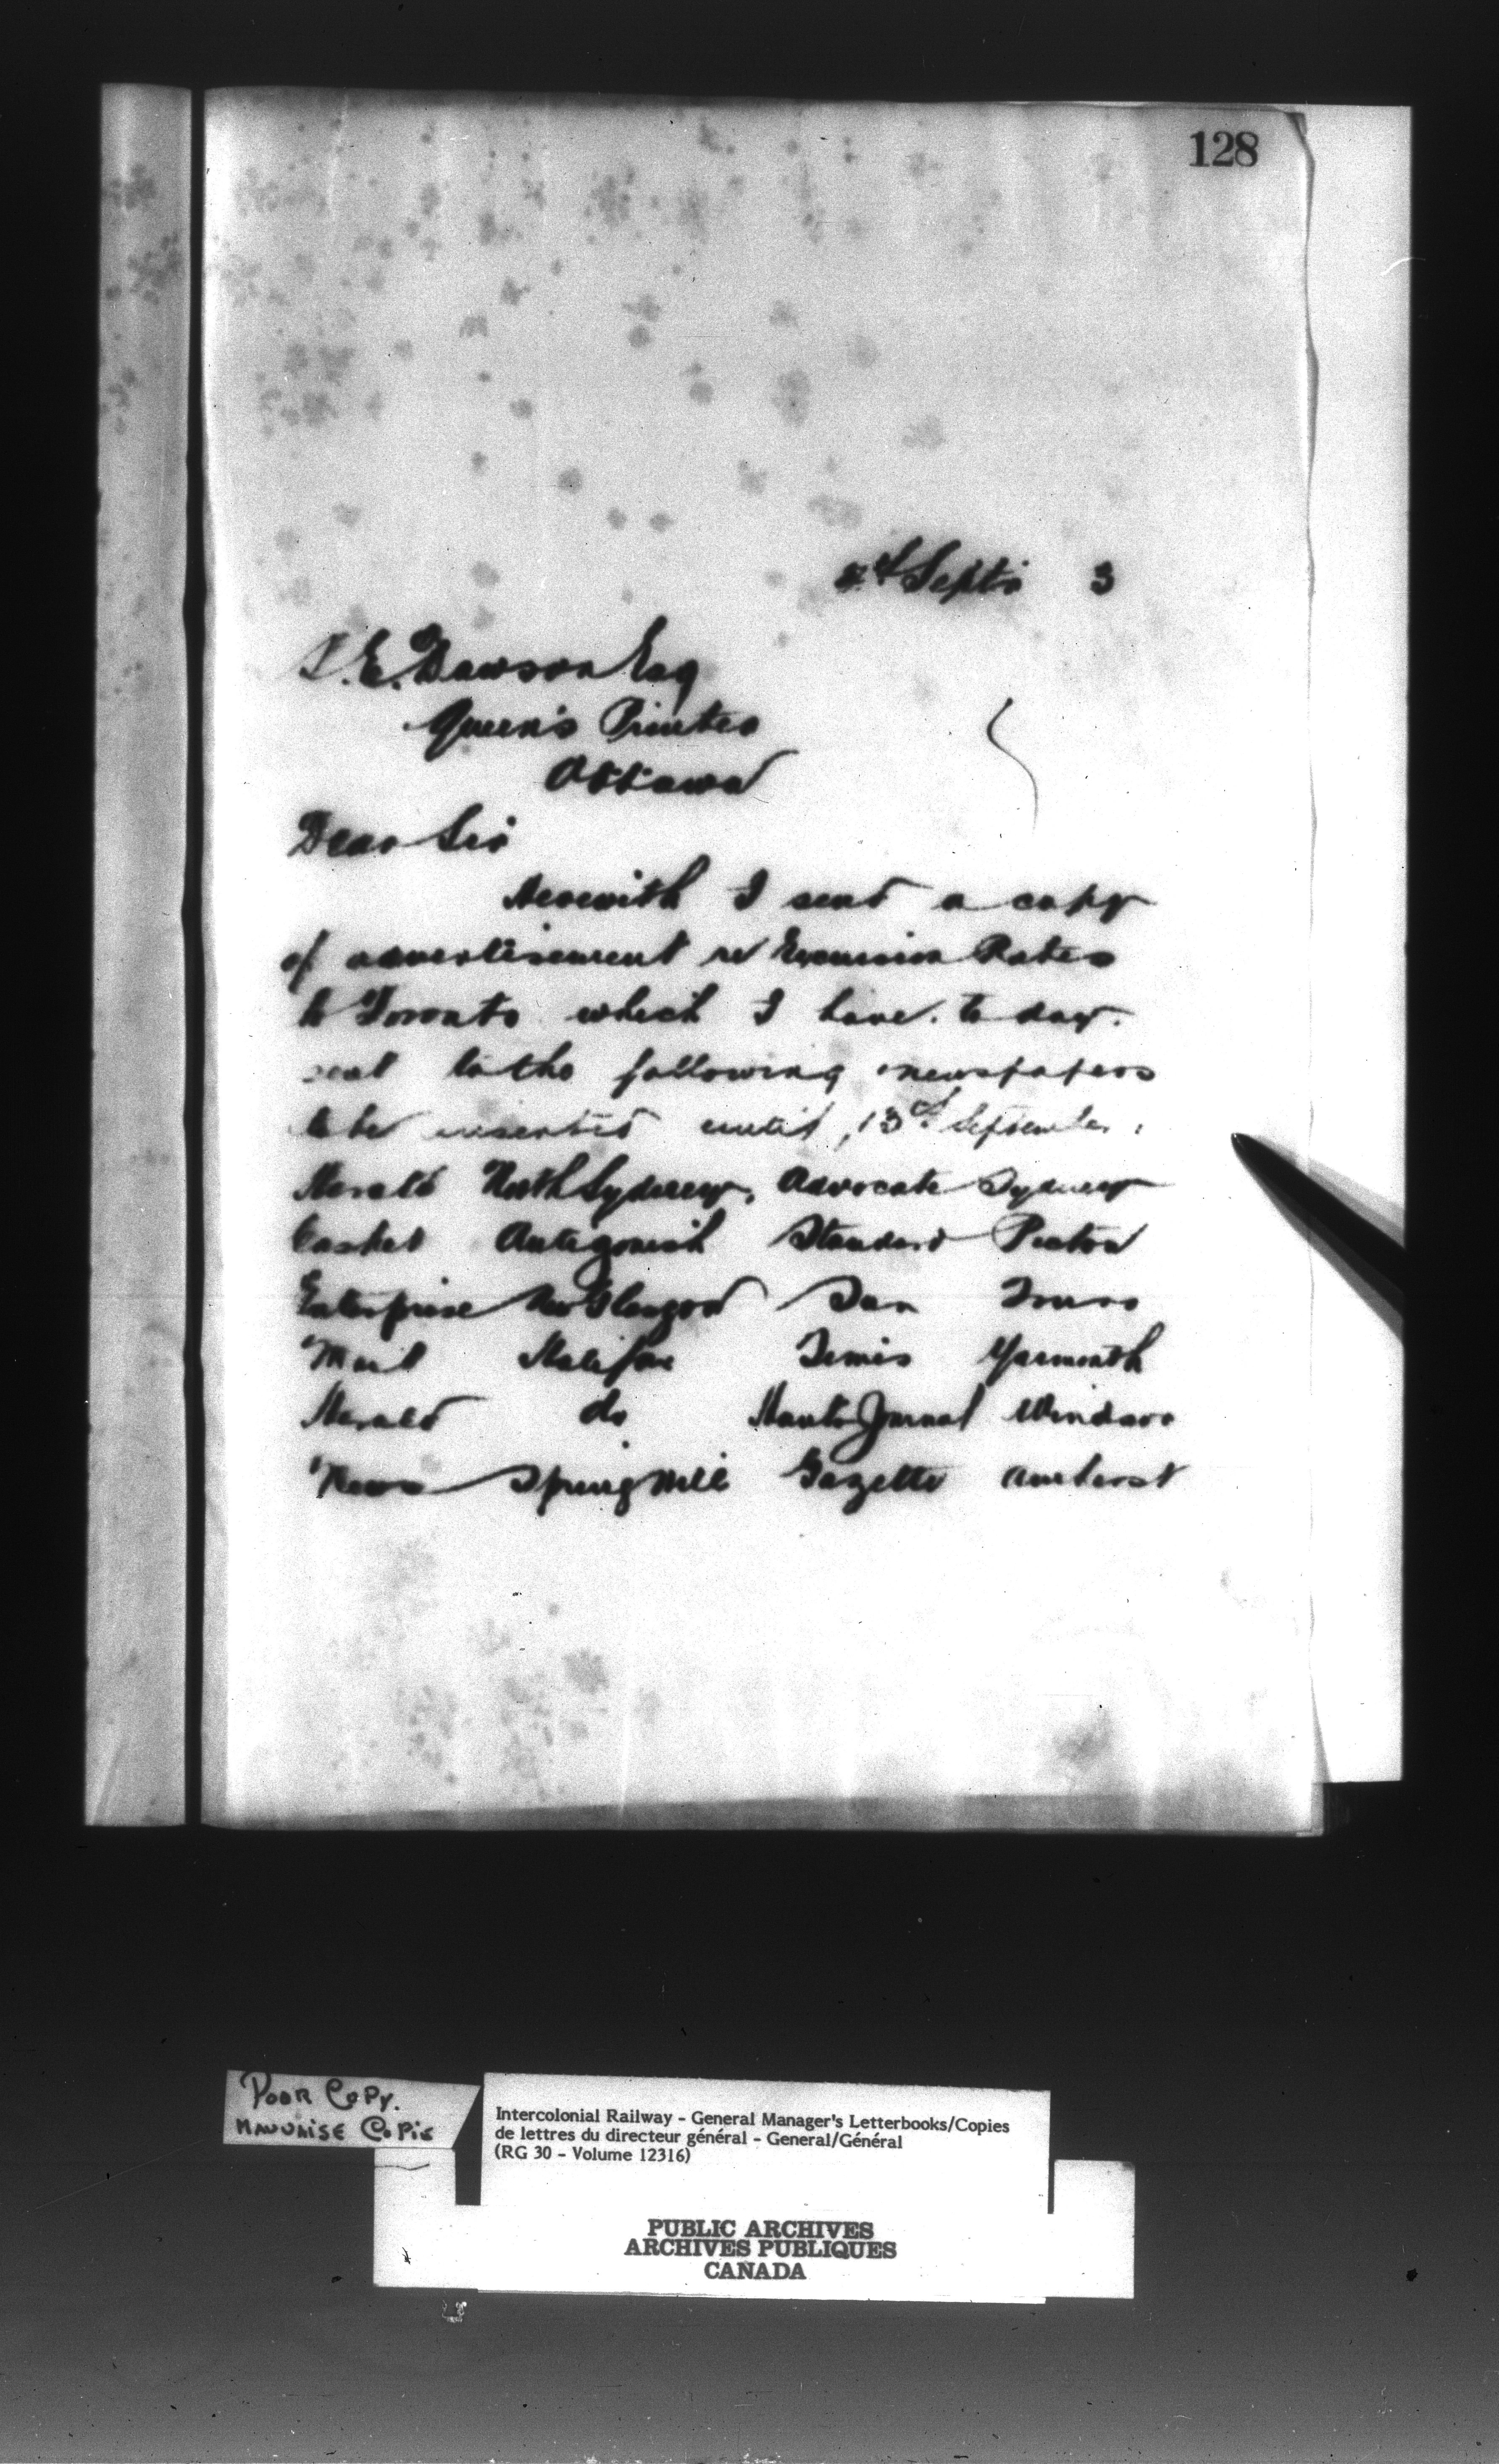 128
Septr 3
S. E. Dawson Esq
Queen's Printer
Ottawa
Dear Sir
Herewith I send a copy
of advertisement re Excursion Rates
to Toronto which I have to day
sent to the following newspapers
to be inserted until 13th September.
Herald North Sydney, Advocate Sydney
Casket Antigonish Standard Pictou
Enterprise New Glasgow Sun Truro
Mail Halifax Times Yarmouth
Herald do Hants Journal Windsor
News Springhill Gazette Amherst
POOR COPY.
MAUVAISE COPIE
Intercolonial Railway - General Manager's Letterbooks/Copies
de lettres du directeur général - General/Général
(RG 30 - Volume 12316)
PUBLIC ARCHIVES
ARCHIVES PUBLIQUES
CANADA